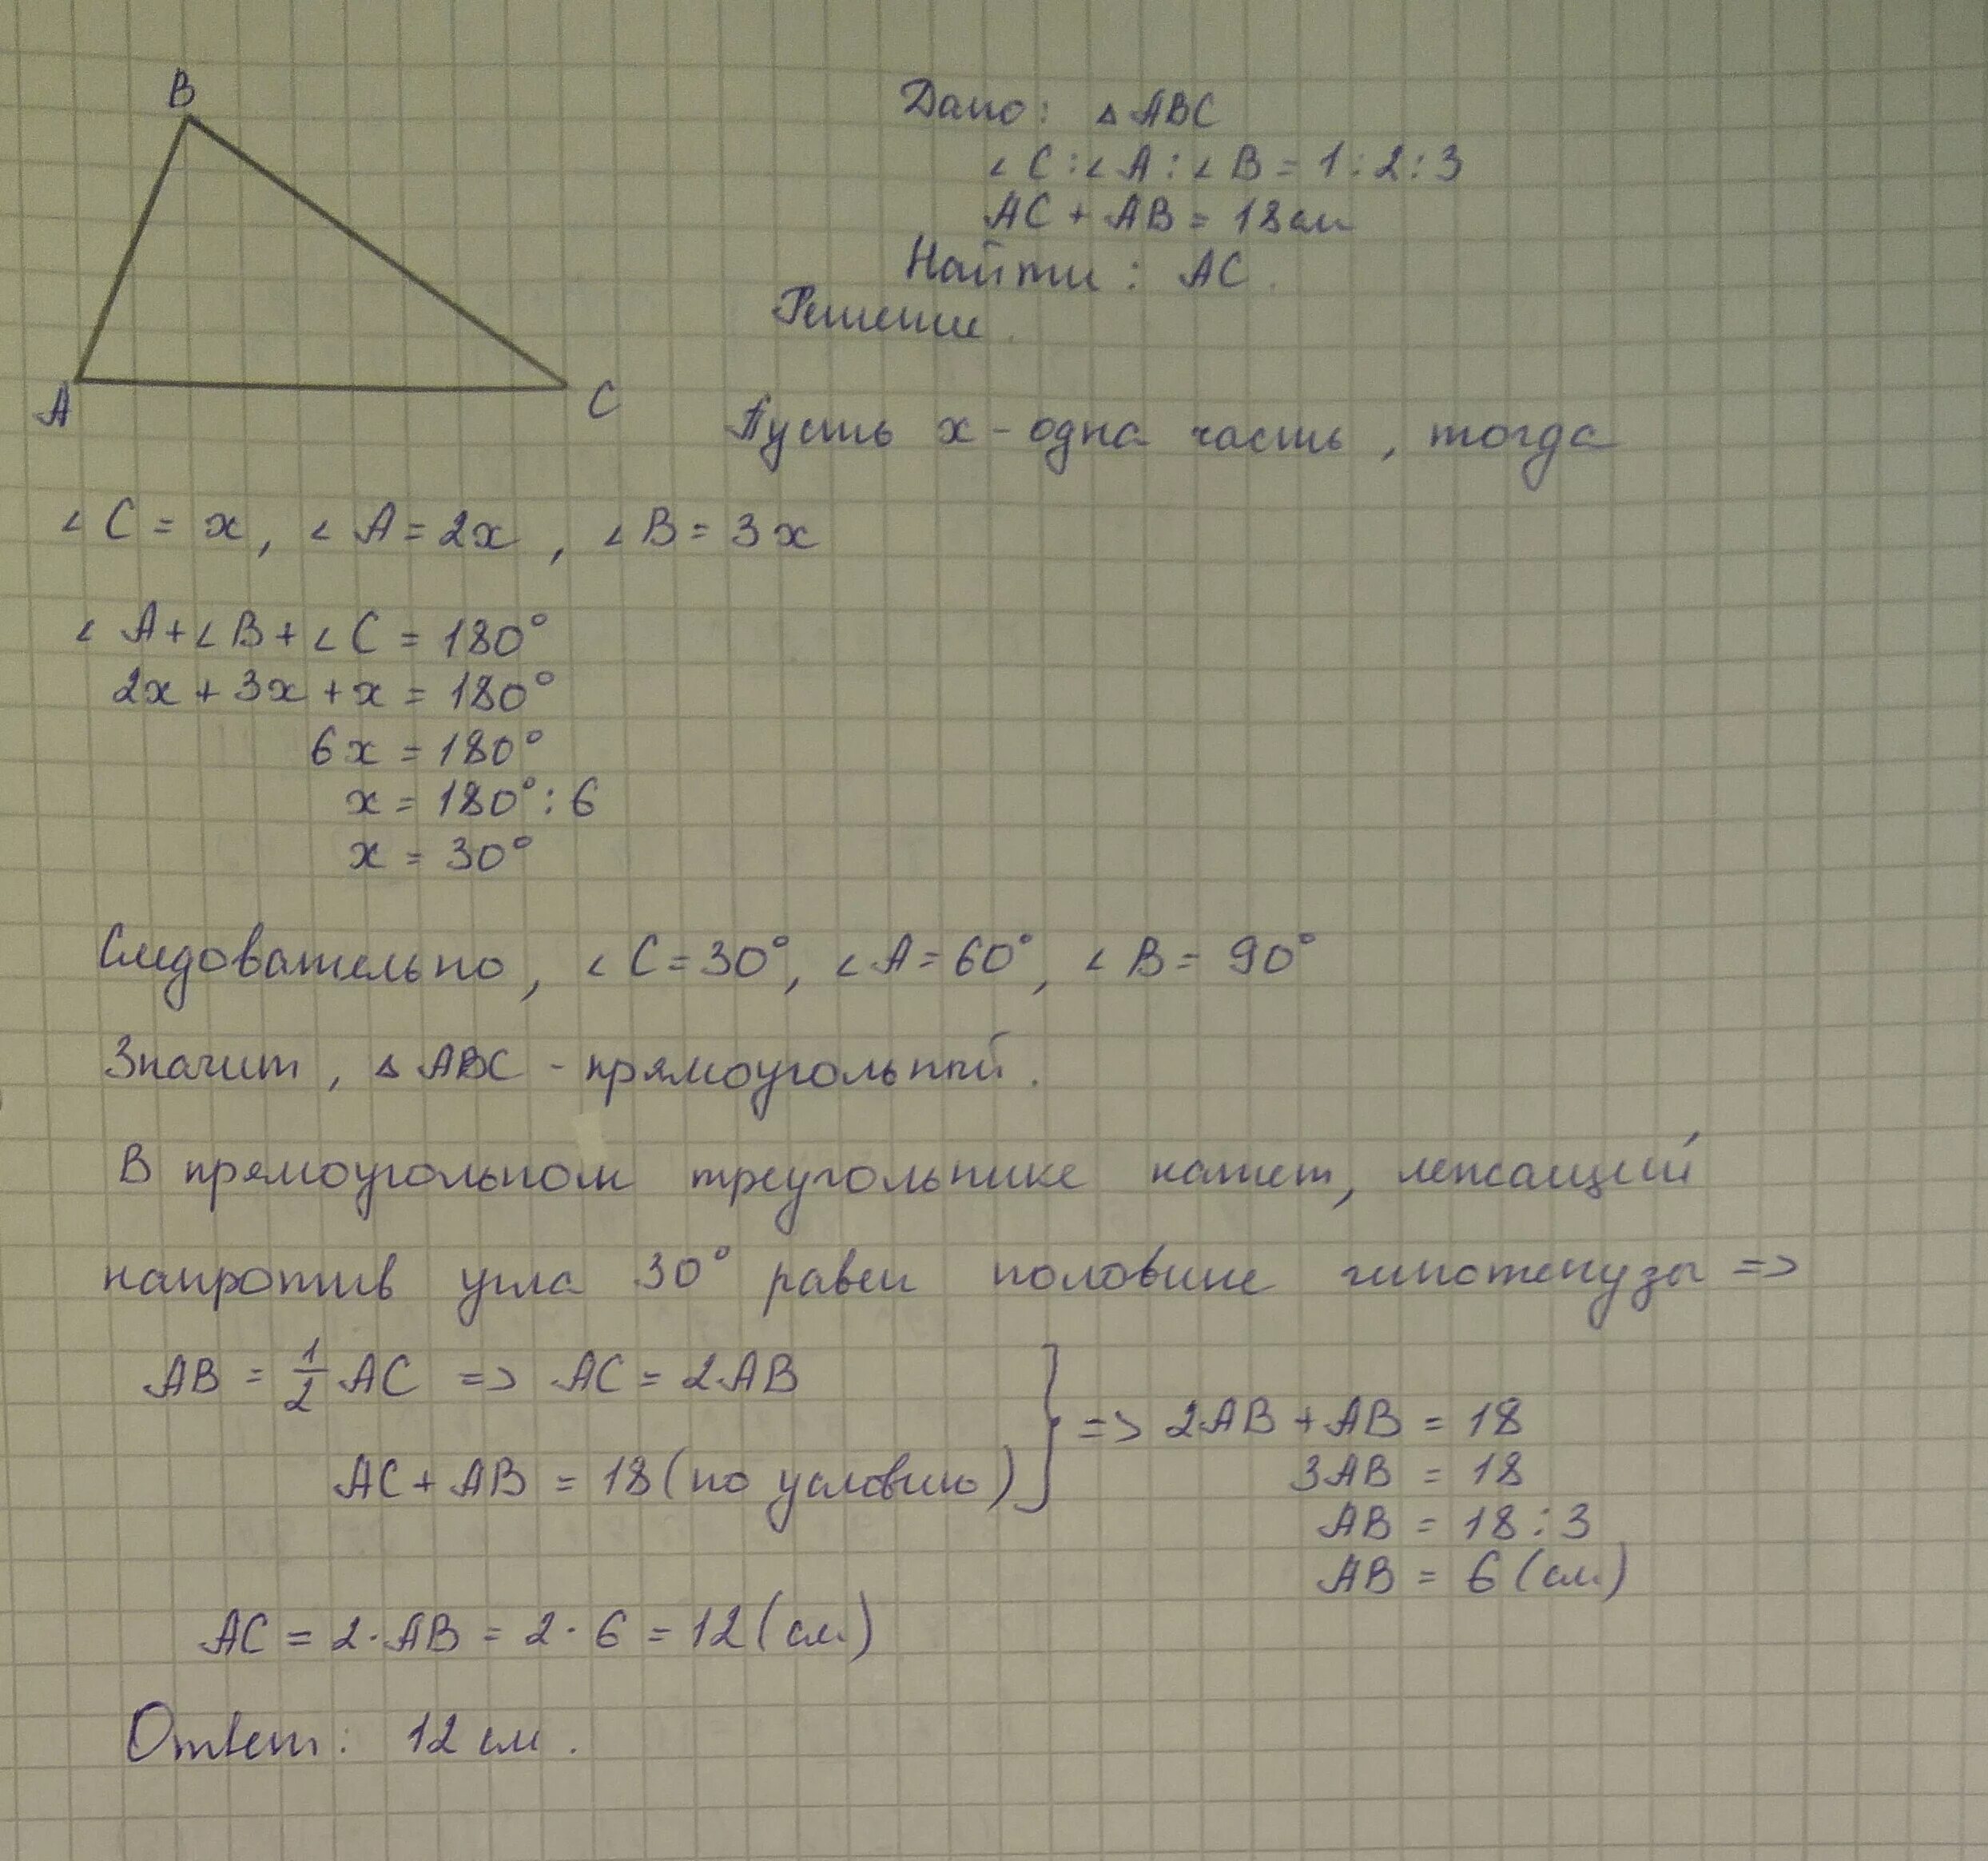 B
A
C
Дано: △ABC
∠C:∠A:∠B = 1:2:3
AC + AB = 18см
Найти: AC.
Решение.
Пусть x - одна часть, тогда
∠C = x, ∠A = 2x, ∠B = 3x
∠A+∠B+∠C = 180°
2x + 3x + x = 180°
6x = 180°
x = 180°:6
x = 30°
Следовательно, ∠C = 30°, ∠A = 60°, ∠B = 90°
Значит, △ABC - прямоугольный.
В прямоугольном треугольнике катет, лежащий
напротив угла 30° равен половине гипотенузы =>
AB = 1/2 AC => AC = 2AB
AC + AB = 18 (по условию) } => 2AB + AB = 18
3AB = 18
AB = 18:3
AB = 6 (см)
AC = 2·AB = 2·6 = 12 (см)
Ответ: 12 см.